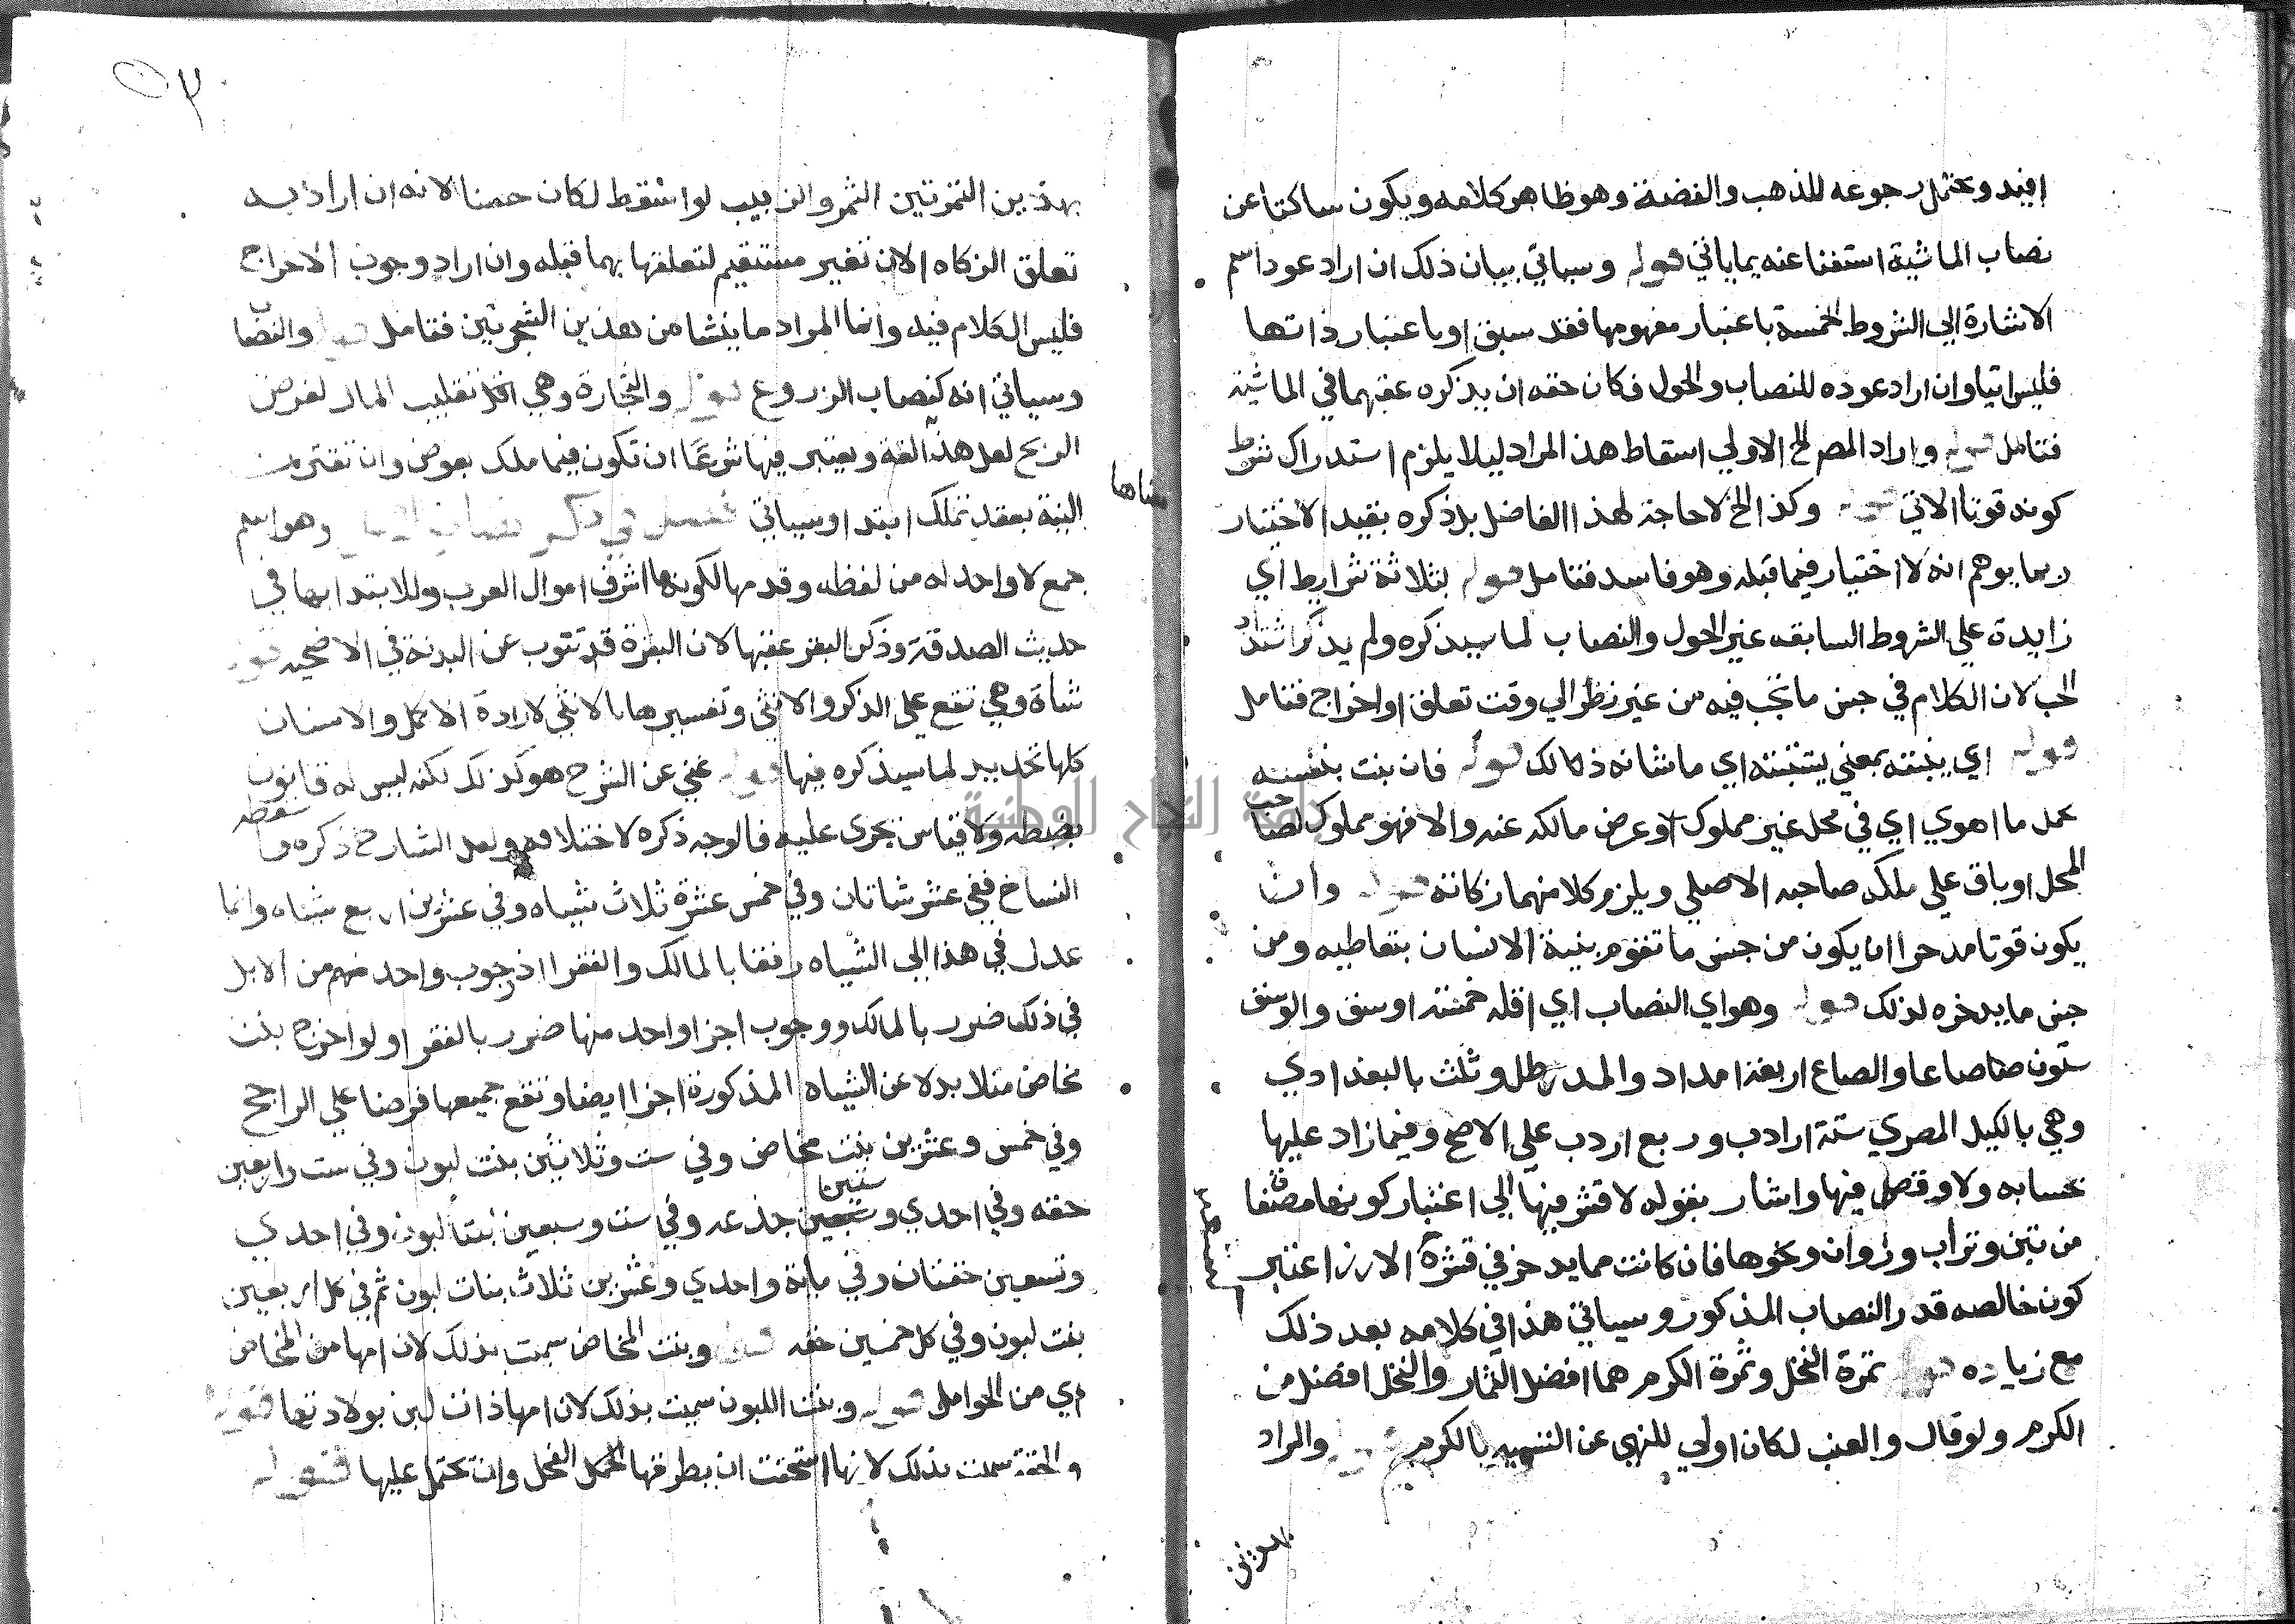 افيد ويحتمل رجوعه للذهب والفضة وهو ظاهر كلامه ويكون ساكتا عن
نصاب الماشية استغناعنه بماياتي قوله وسياتي بيان ذلك ان اراد عود اسم
الاشارة الي الشروط الخمسة باعتبار مفهومها فقد سبق او باعتبار ذاتها
فليس اتيا وان اراد عوده للنصاب والحول فكان حقه ان يذكره عقبهما في الماشية
فتامل قوله واراد المص الخ الاولي اسقاط هذا المراد ليلا يلزم استدراك شرط
كونه قوتا الاتي قوله وكذا الخ لا حاجة لهذا الفاضل بل ذكره بقيد الاختيار
ربما يوهم انه لا اختيار فيما قبله وهو فاسد فتامل قوله بثلاثة شرايط اي
زايدة علي الشروط السابقه غير الحول والنصاب لما سيذكره ولم يذكر اشتداد
الحب لان الكلام في جنس ما تجب فيه من غير نظر الي وقت تعلق او اخراج فتامل
قوله اي ينبته بمعني يستنبته اي ما شانه ذلك قوله فان نبت بنفسه
بحمل ماا هوي اي في محل غير مملوك او عرض مالكه عنه والا فهو مملوك لصاحب
المحل او باق علي ملك صاحبه الاصلي ويلزم كلا منهما زكاته قوله وان
يكون قوتا مدخرا ان يكون من جنس ما تقوم بنية الانسان بتعاطيه ومن
جنس ما يدخره لذلك قوله وهو اي النصاب اي اقله خمسة اوسق والوسق
ستون صاعا والصاع اربعة امداد والمد رطل وثلث بالبغدادي
وهي بالكيل المصري ستة ارادب وربع اردب علي الاصح وفيما زاد عليها
بحسابه ولا وقص فيها واشار بقوله لا قشر فيها الي اعتبار كونها مصفا
من تبن وتراب وزوان ونحوها فان كانت مما يدخر في قشره الارز اعتبر
كون خالصه قدر النصاب المذكور وسياتي هذا في كلامه بعد ذلك
مع زياده قوله ثمرة النخل وثمرة الكرم هما افضل الثمار والنخل افضل من
الكرم ولو قال والعنب لكان اولي للنهي عن التسميه بالكرم قوله والمراد
بهذين
٥٣
بهذين الثمرتين التمر والزبيب لو اسقط لكان حسنا لانه ان اراد به
تعلق الزكاه الان فغير مستقيم لتعلقها بهما قبله وان اراد وجوب الاخراج
فليس الكلام فيه وانما المراد ما ينشا من هذين الشجرتين فتامل قوله والنصاب
وسياتي انه كنصاب الزروع قوله والتجارة وهي تقليب المال لغرض
الربح لعل هذا لغة ويعتبر فيها شرعا ان تكون فيما ملك بعوض وان تقترن
النية بعقد تملك ابتدا وسياتي فصل في ذكر نصاب الابل وهو اسم
جمع لا واحد له من لفظه وقدمها لكونها اشرف اموال العرب وللابتدا بها في
حديث الصدقة وذكر البقر عقبها لان البقرة قد تنوب عن البدنة في الاضحيه قوله
شاة وهي تقع علي الذكر والانثي وتفسيرها بالانثي لارادة الاكمل والاسنان
كلها تحديد لما سيذكره فيها قوله غني عن الشرح هو كذلك لكنه ليس له قانون
بضبطه ولا قياس يجري عليه فالوجه ذكره لاختلافه ولعل الشارح ذكره وا سقطه
النساخ ففي عشر شاتان وفي خمس عشرة ثلاث شياه وفي عشرين اربع شياه وانما
عدل في هذا الي الشياه رفقا بالمالك والفقرا اذ وجوب واحد منهم من الابل
في ذلك ضرر بالمالك ووجوب اجزا واحد منها ضرر بالفقرا ولو اخرج بنت
مخاض مثلا بدلا عن الشياه المذكورة اجزا ايضا وتقع جميعها فرضا علي الراجح
وفي خمس وعشرين بنت مخاض وفي ست وثلاثين بنت لبون وفي ست واربعين
حقه وفي احدي وستين جذعه وفي ست وسبعين بنتا لبون وفي احدي
وتسعين حقتان وفي ماية واحدي وعشرين ثلاث بنات لبون ثم في كل اربعين
بنت لبون وفي كل خمسين حقه قوله وبنت المخاض سميت بذلك لان امها من المخاض
اي من الحوامل قوله وبنت اللبون سميت بذلك لان امها ذات لبن بولادتها قوله
والحقة سميت بذلك لانها استحقت ان يطرقها الفحل وان تحمل عليها قوله
جامعة النجاح الوطنية